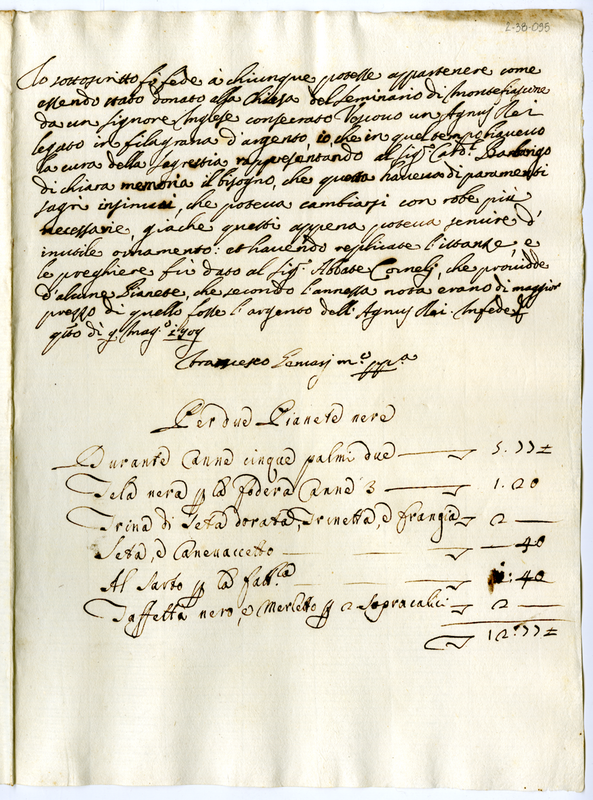 2-38-095
Io sottoscritto fò fede à chiunque potesse appartenere come
essendo stato donato alla Chiesa del seminario di Montefiascone
da un Signore Inglese consecrato Vescovo un Agnus Dei
legato in filagrana d'argento, io, che in quel tempo havevo
la cura della sagrestia rappresentando al Sigr Card.l Barbarigo
di chiara memoria il bisogno, che questa haveva di paramenti
sagri, che poteva cambiarsi con robe più
necessarie, giache questi appena poteva servire d'
inutile ornamento: et havendo replicate l'istanze, e
le preghiere fù dato al Sigr Abbate Cornelj, che providde
d'alcune Pianete, che secondo l'annessa nota erano di maggior
prezzo di quello fosse l'argento dell'Agnus Dei. In fede
qsto dì 9 Mago 1709
Francesco mo ppa
Per due Pianete nere
Durante Canne cinque palmi due 5.77½
Tela nera p la fodera Canne 3 1.20
Trina di Seta dorata, Trinetta, e frangia 2
Seta, e Canevaccetto 40
Al Sarto p la fattra 1:40
Taffettà nero, e Merletto p 2 Sopracalici 2
12:77½